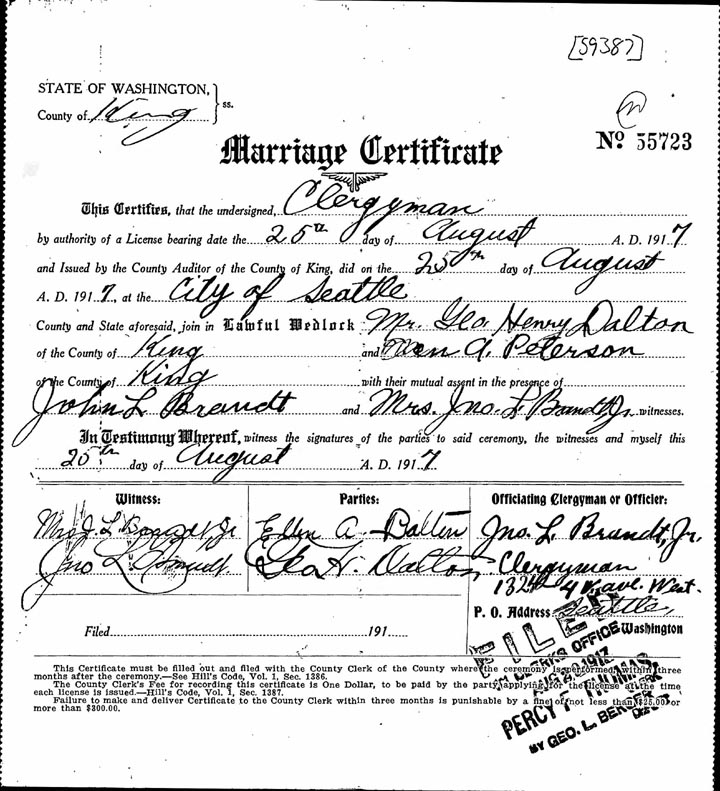 [59387]
STATE OF WASHINGTON, } ss.
County of King
No 55723
Marriage Certificate
This Certifies, that the undersigned, Clergyman
by authority of a License bearing date the 25th day of August A. D. 1917
and Issued by the County Auditor of the County of King, did on the 25th day of August
A. D. 1917 at the City of Seattle
County and State aforesaid, join in Lawful Wedlock Mr. Geo. Henry Dalton
of the County of King and A. Peterson
of the County of King with their mutual assent in the presence of
John L Brandt and Mrs. Jno. L. Brandt, Jr. witnesses.
In Testimony Whereof, witness the signatures of the parties to said ceremony, the witnesses and myself this
25th day of August A. D. 1917
Witness: Parties: Officiating Clergyman or Officier:
Mrs J L Brandt Jr Ellen A. Dalton Jno. L. Brandt, Jr.
Jno L. Brandt. Geo H. Dalton Clergyman
ave. West.
P. O. Address Seattle, Washington
Filed 191
This Certificate must be filled out and filed with the County Clerk of the County where the ceremony is performed, within three
months after the ceremony.—See Hill's Code, Vol. 1, Sec. 1386.
The County Clerk's Fee for recording this certificate is One Dollar, to be paid by the party applying for the license at the time
each license is issued.—Hill's Code, Vol. 1, Sec. 1387.
Failure to make and deliver Certificate to the County Clerk within three months is punishable by a fine of not less than $25.00 or
more than $300.00.
FILED
CLERKS OFFICE
AUG 1917
PERCY F. THOMAS
CLERK
BY GEO. L. BERGER
DEPUTY